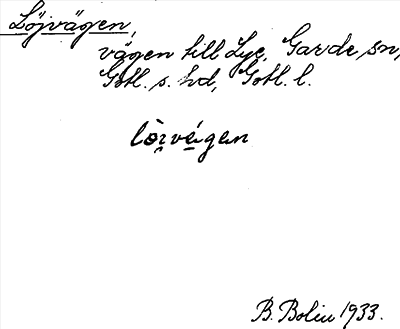 Löjvägen,
vägen till Lye, Garde sn,
Gotl. s. hd, Gotl. l.
B. Bolin 1933.